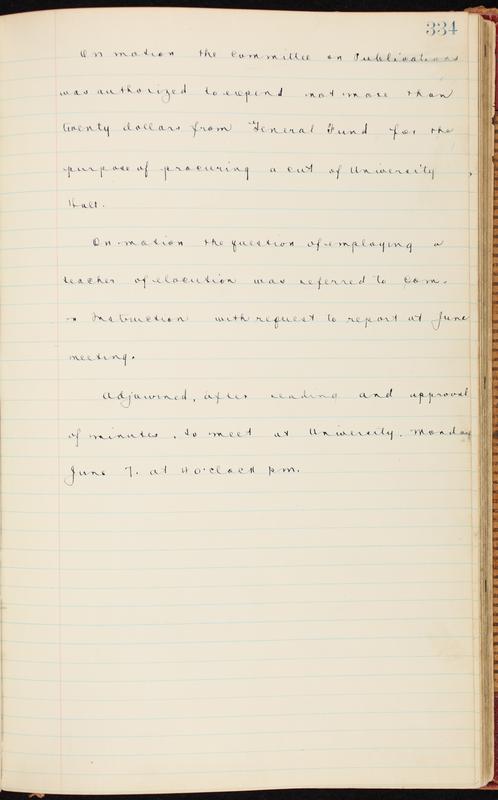 334
On motion the Committee on Publications
was authorized to expend not more than
twenty dollars from General Fund for the
purpose of procuring a cut of University
Hall.
On motion the question of employing a
teacher of elocution was referred to Com.
Instruction with request to report at June
meeting.
Adjourned, after reading and approval
of minutes, to meet at University, Monday
June 7. at 4 o'clock pm.